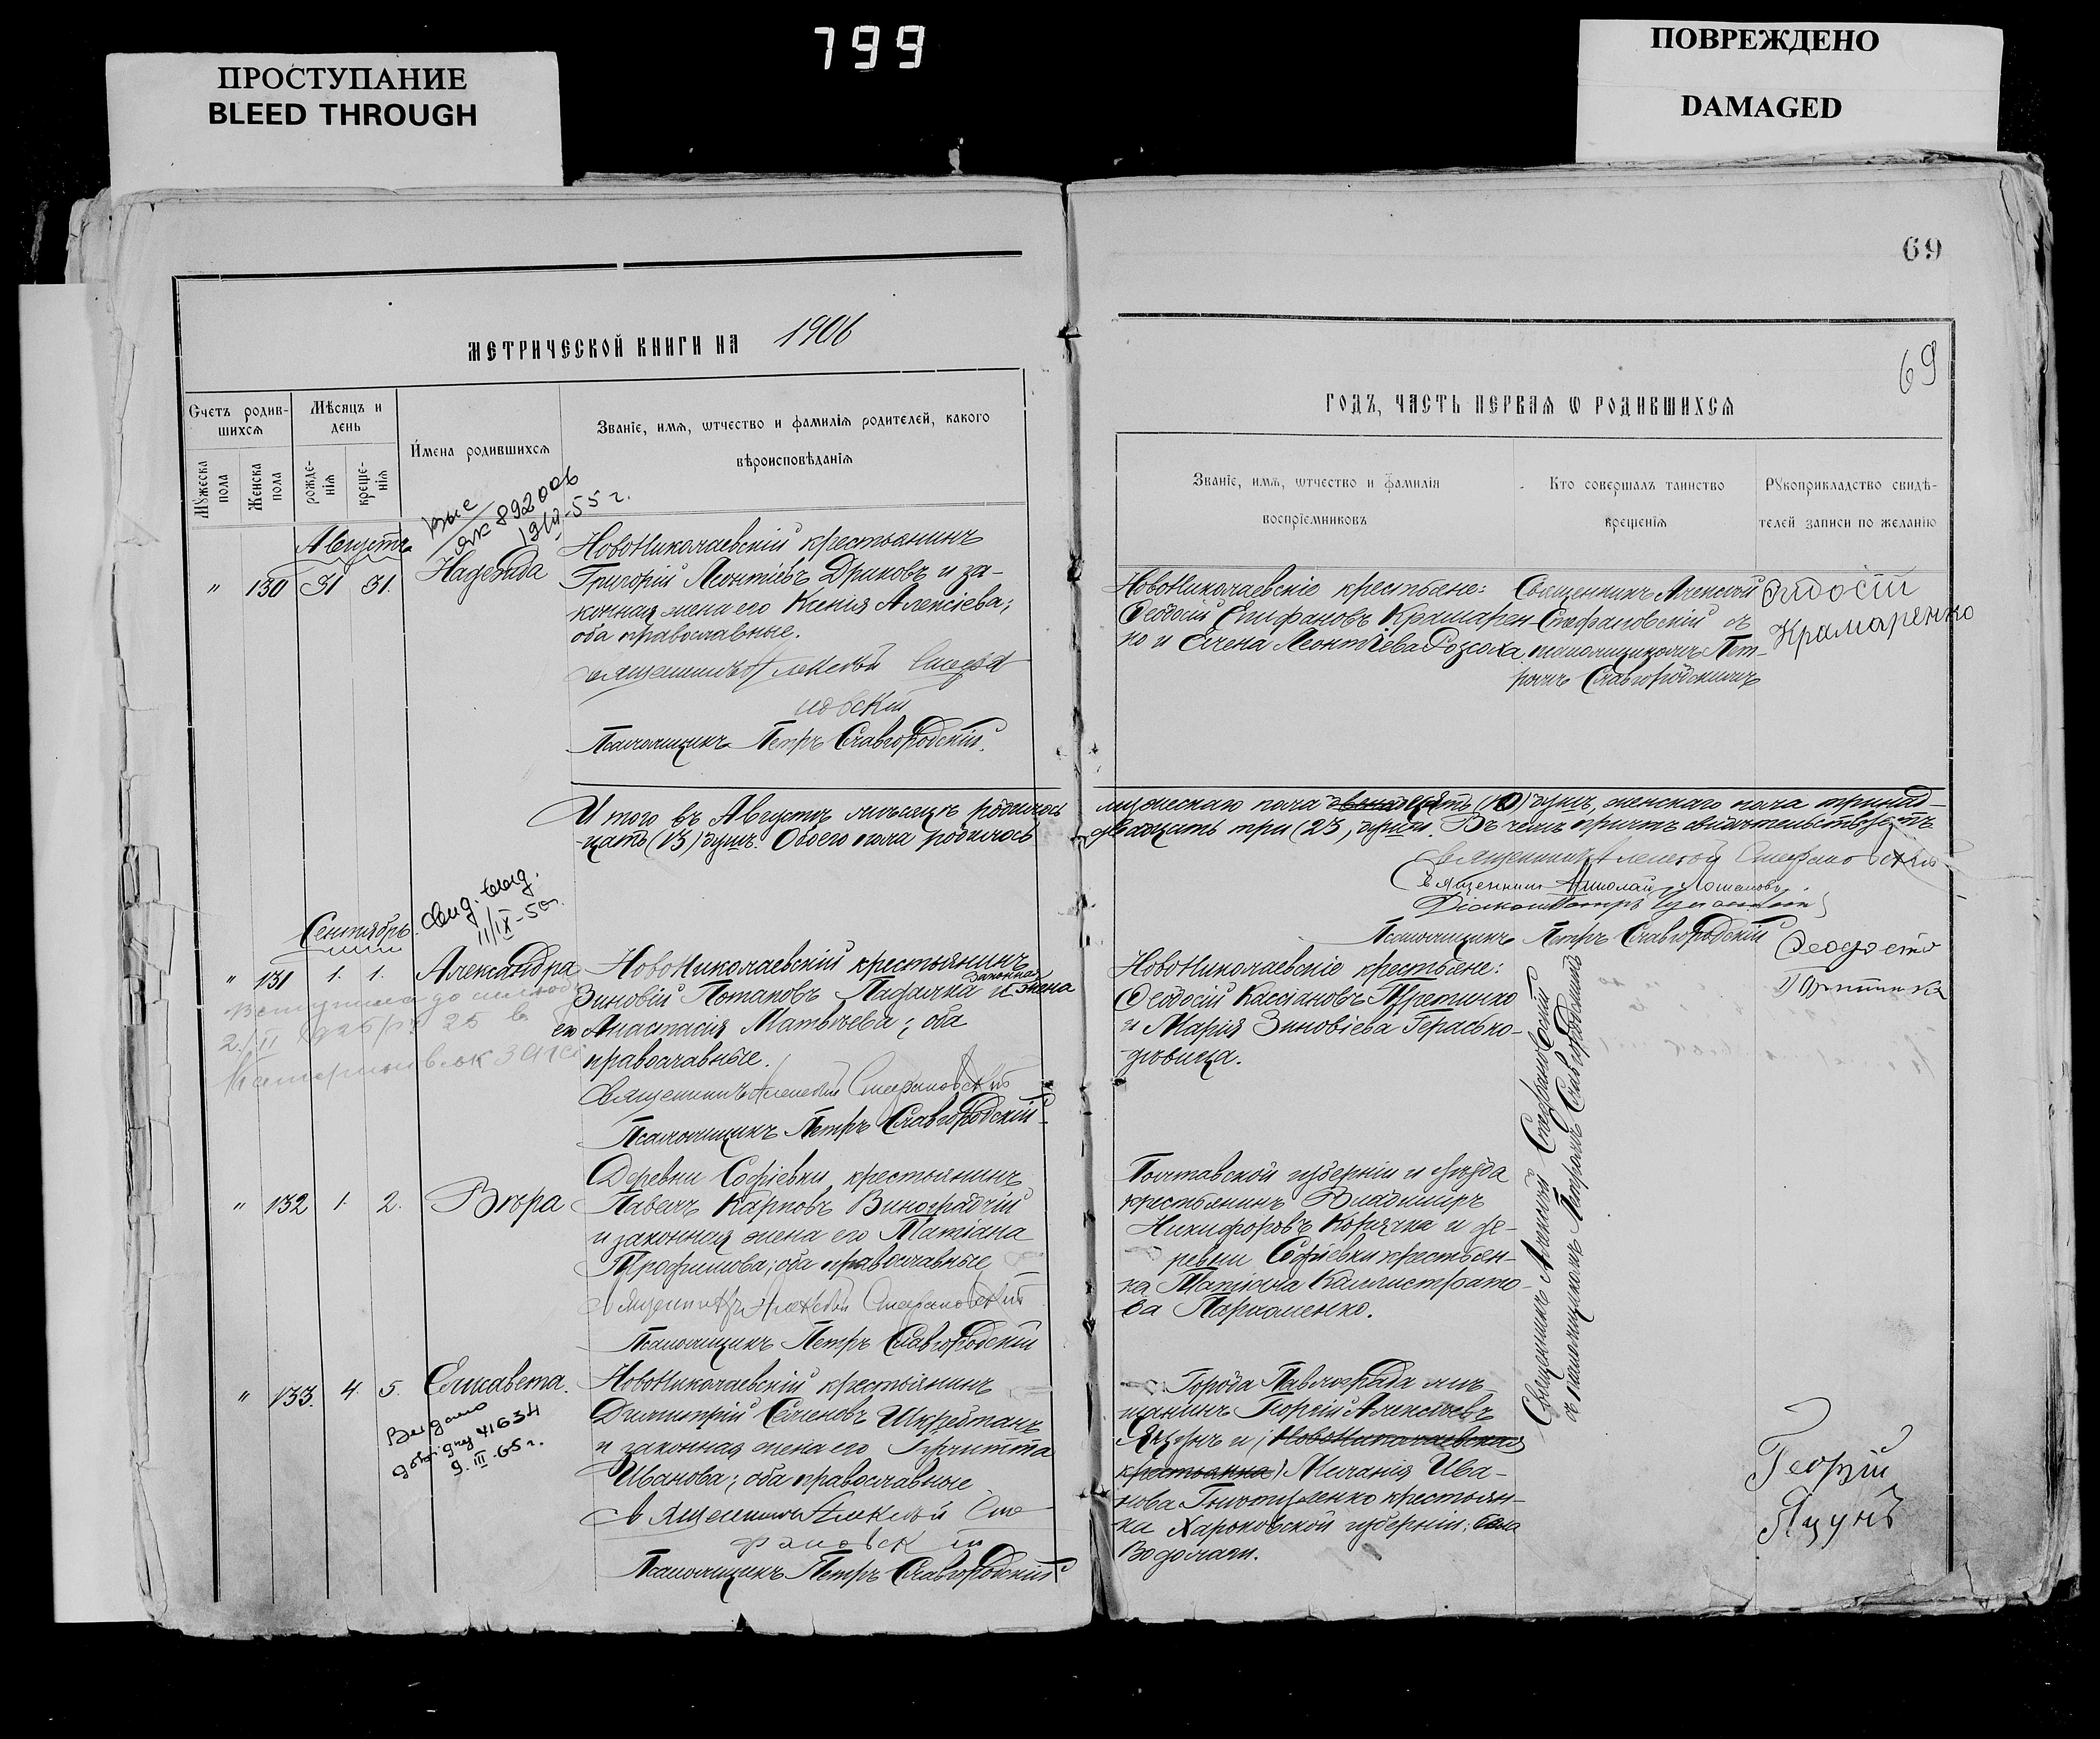 799
ПРОСТУПАНИЕ
BLEED THROUGH
ПОВРЕЖДЕНО
DAMAGED
69
МЕТРИЧЕСКОЙ КНИГИ НА 1906
Счетъ родив-
шихсѧ
Мужеска пола
Женска пола
Мѣсяцъ и
день
рожде-
нія
креще-
нія
Имена родившихсѧ
Званіе, имѧ, ѿтчество и фамилія родителей, какого
вѣроисповѣданія
69
ГОДЪ, ЧАСТЬ ПЕРВАѦ Ѡ РОДИВШИХСѦ
Званіе, имѧ, ѿтчество и фамилія
воспріемниковъ
Кто совершалъ таинство
крещенія
Рукоприкладство свидѣ-
телей записи по желанію
892006
19/II-55 г.
Августъ
" 130 31 31. Надежда
НовоНиколаевскій крестьянинъ
Григорій Леонтіевъ Дриковъ и за-
конная жена его Ксенія Алексіева;
оба православные.
Священникъ Алексѣй Стефа
новскій
Псаломщикъ Петръ Славгородскій.
НовоНиколаевскіе крестьяне:
Ѳеодосій Епифановъ Крамарен-
ко и Елена Леонтіева Розсоха.
Священникъ Алексѣй
Стефановскій съ
псаломщикомъ Пет-
ромъ Славгородскимъ
Крамаренко
Итого въ Августѣ мѣсяцѣ родилось мужескаго пола (10) душъ, женскаго пола тринад-
цать (13) душъ. Обоего пола родилось двадцать три (23) души. Въ чемъ причтъ свидѣтельствуетъ
Священникъ Алексѣй Стефановскій
Священникъ Николай
Діаконъ Петръ
Псаломщикъ Петръ Славгородскій
Сентябрь
Свид. выд.
11/IX-50г.
" 131 1. 1. Александра
НовоНиколаевскій крестьянинъ
Зиновій Потаповъ Падалка и законная жена
его Анастасія Матвѣева; оба
православные.
Священникъ Алексѣй Стефановскій
Псаломщикъ Петръ Славгородскій
НовоНиколаевскіе крестьяне:
Ѳеодосій Кассіановъ
и Марія Зиновіева
Священникъ Алексѣй Стефановскій
съ псаломщикомъ Петромъ Славгородскимъ
" 132 1. 2. Вѣра
Деревни Софіевки крестьянинъ
Павелъ Карповъ Виноградчій
и законная жена его Татіана
Трофимова; оба православные
Священникъ Алексѣй Стефановскій
Псаломщикъ Петръ Славгородскій
Полтавской губерніи и уѣзда
крестьянинъ Владиміръ
Никифоровъ Корячка и де-
ревни Софіевки крестьян-
ка Татіана Каллистрато-
ва Пархоменко.
" 133. 4. 5. Елисавета.
Выдано
41634
9.III-65 г.
НовоНиколаевскій крестьянинъ
Димитрій Семеновъ
и законная жена его
Иванова; оба православные
Священникъ Алексѣй Сте
фановскій
Псаломщикъ Петръ Славгородскій
Города Павлограда мѣ-
щанинъ Георгій Алексѣевъ
Яцунъ и (НовоНиколаевская
крестьянка) Меланія Ива-
нова крестьян-
ка Харьковской губерніи; села
Водолаги.
Георгій
Яцунъ